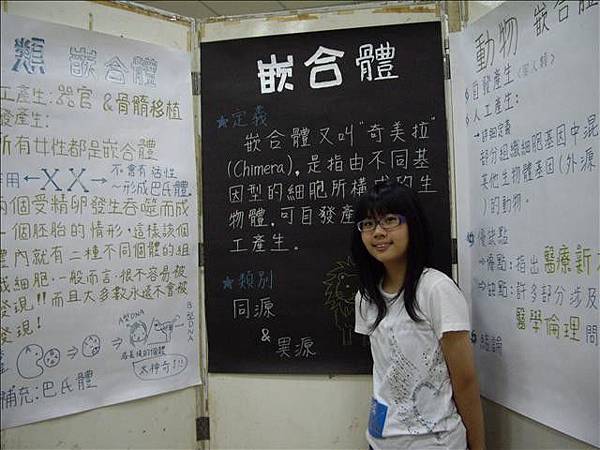 類 嵌合體
工產生:器官 &骨髓移植
發產生:
所有女性都是嵌合體
用 ←XX→ 不會有活性
～形成巴氏體
兩個受精卵發生吞噬而成
一個胚胎的情形,這樣該個
體內就有二種不同個體的組
織細胞.一般而言.很不容易被
發現!!而且大多數永遠不會被
發現!
A型DNA
B型DNA
太神奇!!!
補充:巴氏體
嵌合體
★定義
嵌合體又叫"奇美拉"
(Chimera),是指由不同基
因型的細胞所構成的生
物體,可自發產
工產生。
★類別
同源
&
異源
動物 嵌合體
自發產生(同人類)
人工產生:
→詳細定義
部分組織細胞基因中混
其他生物體基因(外源
)的動物.
優缺點
→優點:指出醫療新
→缺點:許多部分涉及
醫學倫理問
結論